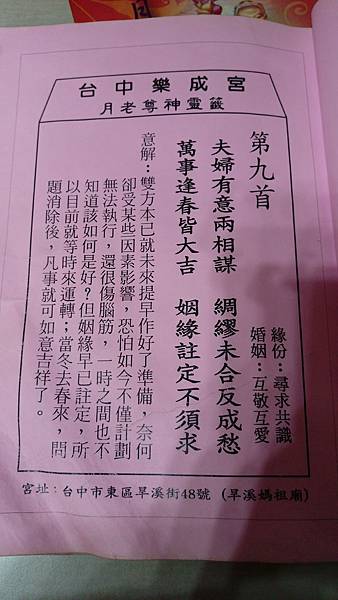 宮成樂中台
籤靈神尊老月
第九首
緣份：尋求共識
婚姻：互敬互愛
夫婦有意兩相謀　綢繆未合反成愁
萬事逢春皆大吉　姻緣註定不須求
意解：雙方本已就未來提早作好了準備，奈何
卻受某些因素影響，恐怕如今不僅計劃
無法執行，還很傷腦筋，一時之間也不
知道該如何是好？但姻緣早已註定，所
以目前就等時來運轉；當冬去春來，問
題消除後，凡事就可如意吉祥了。
宮址：台中市東區旱溪街48號（旱溪媽祖廟）